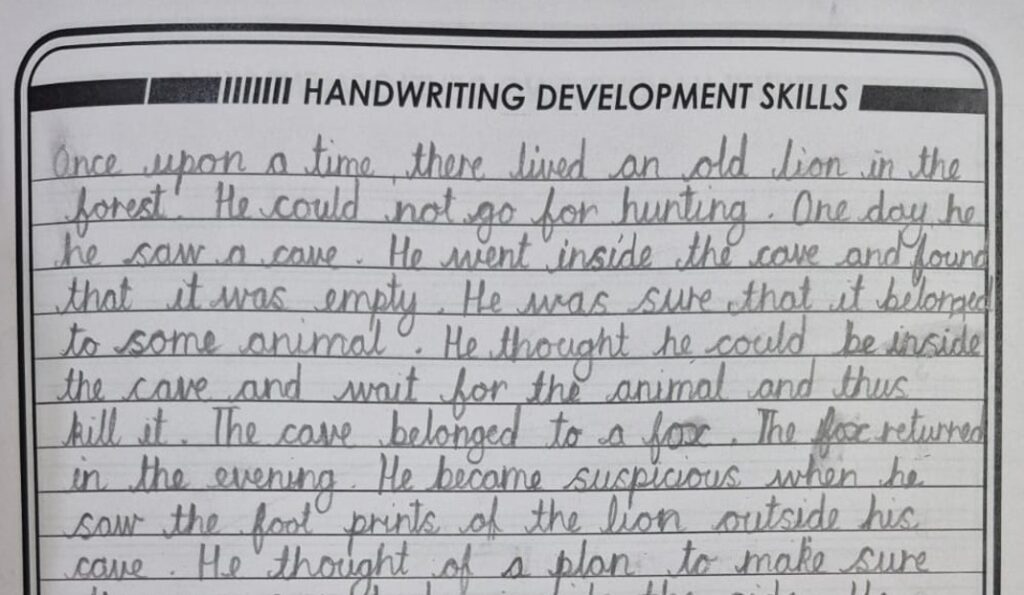 HANDWRITING DEVELOPMENT SKILLS
Once upon a time, there lived an old lion in the
forest. He could not go for hunting. One day he
he saw a cave. He went inside the cave and found
that it was empty. He was sure that it belonged
to some animal. He thought he could be inside
the cave and wait for the animal and thus
kill it. The cave belonged to a fox. The fox returned
in the evening. He became suspicious when he
saw the foot prints of the lion outside his
cave. He thought of a plan to make sure